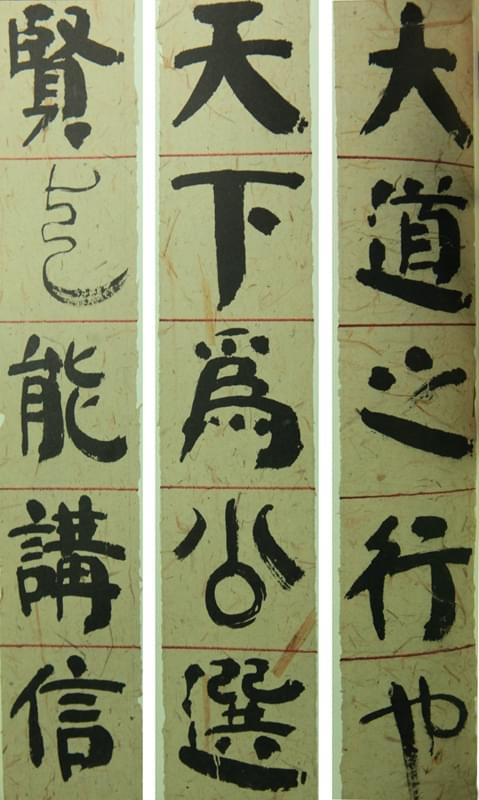 大道之行也
天下爲公選
賢與能講信